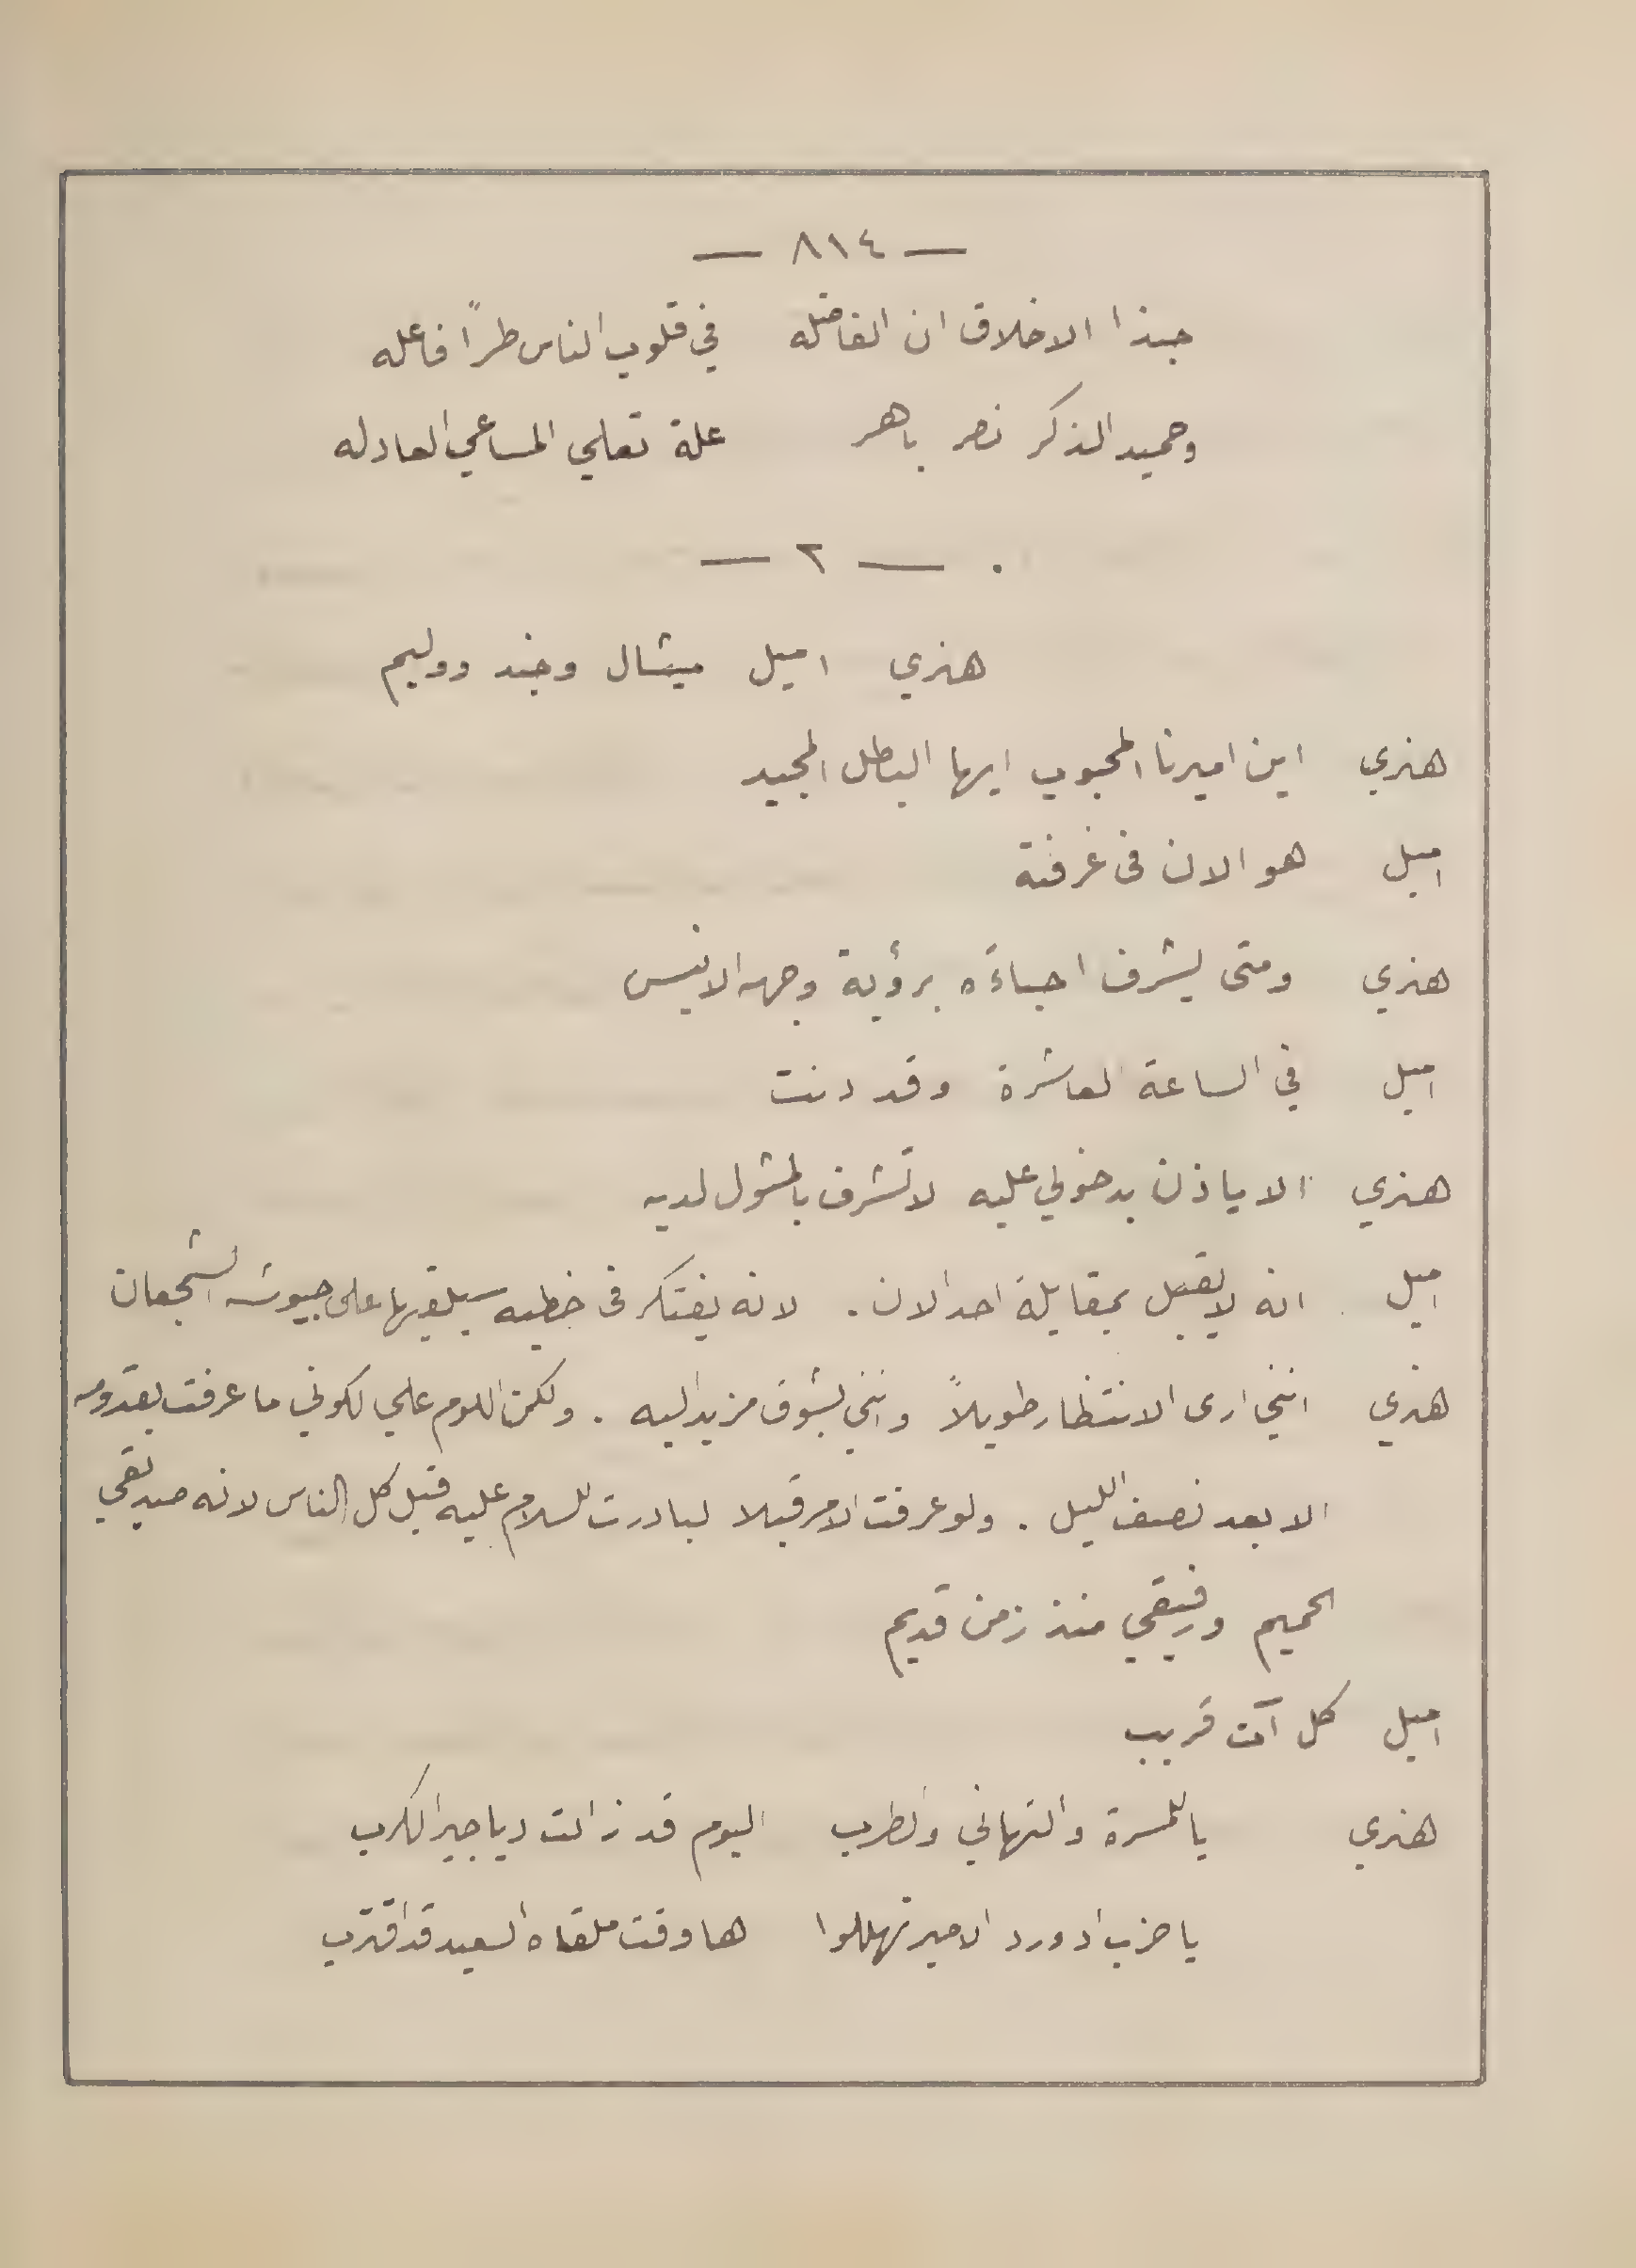 — ٨١٤ —
حبذا الاخلاق ان الفاضله في قلوب الناس طراً فاعله
وحميد الذكر نصر باهر علة تعلي المساعي العادله
— ٢ —
هنري اميل ميشال وجند ووليم
هنري اين اميرنا المحبوب ايها البطل المجيد
اميل هو الان فى غرفته
هنري ومتى يشرف احباءَه برؤية وجهه الانيس
اميل في الساعة العاشرة وقد دنت
هنري الا ياذن بدخولي عليه لاتشرف بالمثول لديه
اميل انه لا يقبل بمقابلة احد الان . لانه يفتكر فى خطبه سيلقيها على جيوشه الشجعان
هنري انني ارى الانتظار طويلاً وانني بشوق مزيد اليه . ولكن اللوم علي لكوني ما عرفت بقدومه
الا بعد نصف الليل . ولو عرفت الامر قبلا لبادرت للسلام عليه قبل كل الناس لانه صديقي
الحميم ورفيقي منذ زمن قديم
اميل كل آت قريب
هنري يا للمسرة والتهاني والطرب اليوم قد زالت دياجير الكرب
يا حزب ادورد الامير تهللوا ها وقت ملقاه السعيد قد اقترب